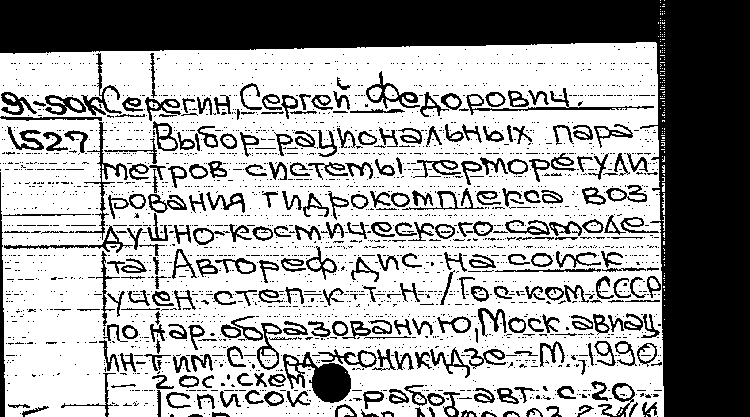 91-50К Серегин, Сергей Федорович.
1527 Выбор рациональных пара-
метров системы терморегули-
рования гидрокомплекса воз-
душно-космического самоле-
та: Автореф. дис. на соиск.
учен. степ. к. т. н. / Гос. ком. СССР
по нар. образованию, Моск. авиац.
ин-т им. С. Орджоникидзе. - М., 1990
20 с.: схем.
Список работ авт.: с. 20